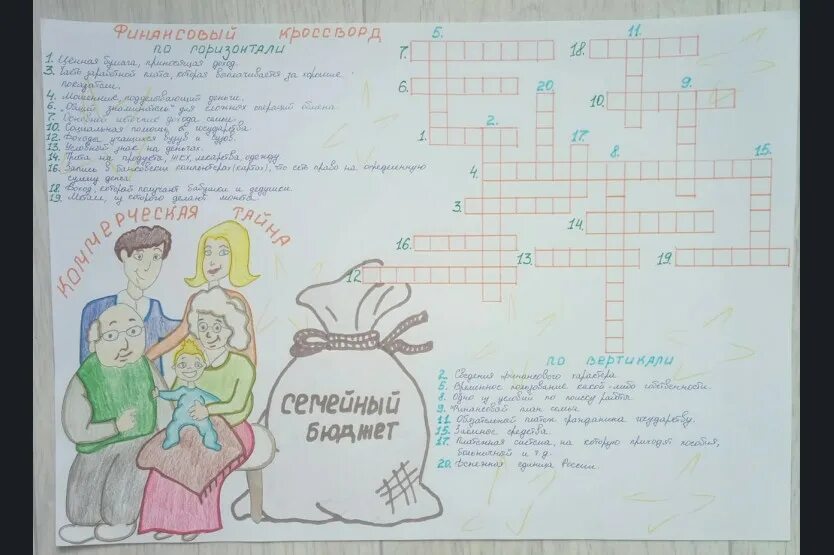 Финансовый кроссворд
по горизонтали
1. Ценная бумага, приносящая доход.
3. Часть заработной платы, которая выплачивается за хорошие
показатели.
4. Мошенник, подделывающий деньги.
6. "Общий знаменатель" для сложных операций обмена.
7. Основной источник дохода семьи.
10. Социальная помощь от государства.
12. Доходы учащихся вузов и ссузов.
13. Условный знак на деньгах.
14. Трата на продукты, ЖКХ, лекарства, одежду.
16. Запись в банковских компьютерах (картах), что есть право на определенную
сумму денег.
18. Доход, который получают бабушки и дедушки.
19. Металл, из которого делают монеты.
коммерческая тайна
семейный
бюджет
5.
11.
7.
18.
6.
20.
9.
10.
2.
1.
17.
8.
15.
4.
3.
14.
16.
13.
19.
12
по вертикали
2. Сведения финансового характера.
5. Временное пользование какой-либо собственности.
8. Одно из условий по поиску работы.
9. Финансовый план семьи.
11. Обязательный платеж гражданина государству.
15. Заёмные средства.
17. Платёжная система, на которую приходят пособия,
больничный и т.д.
20. Денежная единица России.